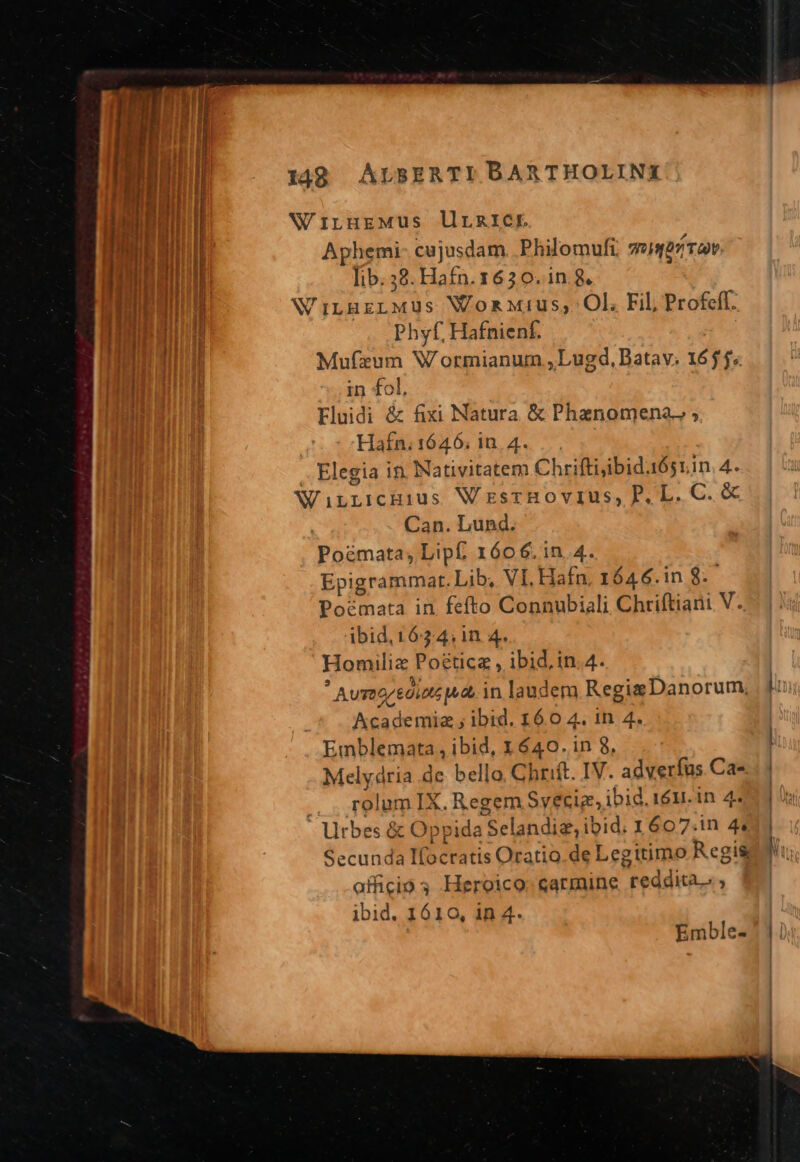 148 ALBERTI BARTHOLINI
WILHEMUS ULRICI.
Aphemi cujusdam Philomuſi
lib. 38. Hafn. 1630. in 8.
WILHELMUS WORMIUS, Ol. Fil, Profeſſ.
Phyſ, Hafnienſ.
Muſæum Wormianum, Lugd, Batav. 1655.
in fol.
Fluidi & fixi Natura & Phænomena,
Hafn. 1646. in 4.
Elegia in Nativitatem Chriſti, ibid. 1651. in 4.
WILLICHIUS WESTHOVIUS, P. L. C. &
Can. Lund.
Poëmata, Lipſ. 1606. in 4.
Epigrammat. Lib. VI. Hafn. 1646. in 8.
Poëmata in feſto Connubiali Chriſtiani V.
ibid, 1634. in 4.
Homiliæ Poëticæ, ibid. in. 4.
in laudem Regiæ Danorum,
Academiæ, ibid. 1604. in 4.
Emblemata, ibid, 1640. in 8,
Melydria de bello Chriſt. IV. adverſus Ca-
rolum IX. Regem Sveciæ, ibid. 1611. in 4.
Urbes & Oppida Selandiæ, ibid. 1607. in 4.
Secunda Iſocratis Oratio de Legitimo Regis
officio, Heroico carmine reddita,
ibid. 1610, in 4.
Emble-